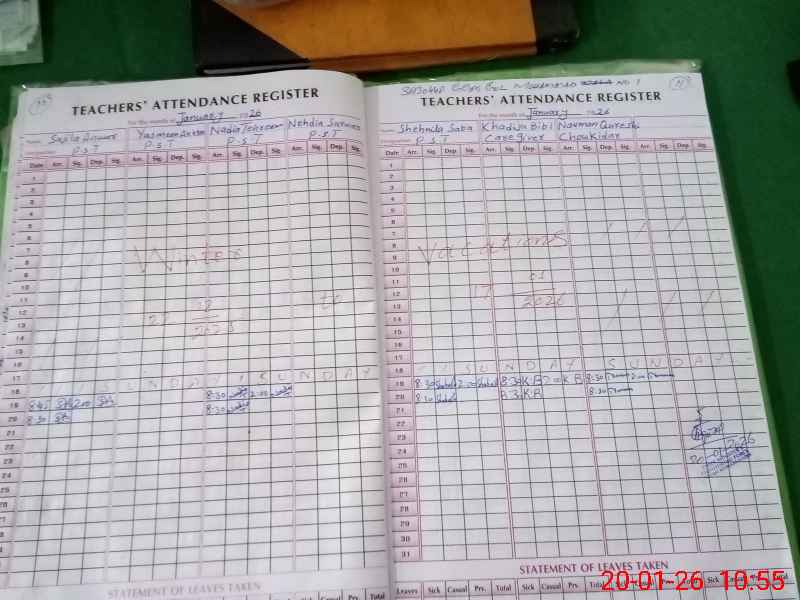 TEACHERS' ATTENDANCE REGISTER
For the month of January 2026
Name Sajila Anwar Yasmeen Nadia Nehdia
P.S.T P.S.T P.S.T P.S.T
Date Arr. Sig. Dep. Sig. Arr. Sig. Dep. Sig. Arr. Sig. Dep. Sig. Arr. Sig. Dep. Sig.
1
2
3
4
5
6
7
8
Winter
9
10
11
12 to
13
14
15
16
17
18 SUNDAY SUNDAY
19 8:45 2:00 8:30 2:00
20 8:30 8:30
21
22
23
24
25
26
27
28
29
30
31
STATEMENT OF LEAVES TAKEN
NO 1
TEACHERS' ATTENDANCE REGISTER
For the month of January 26
Name Shehnda Saba Khadija Bibi Nauman Qureshi
Designation P.S.T Caregiver Chowkidar
Date Arr. Sig. Dep. Sig. Arr. Sig. Dep. Sig. Arr. Sig. Dep. Sig. Arr. Sig. Dep. Sig.
1
2
3
4
5
6
7
8 Vacations
9
10
11
12 17 01 2026
13
14
15
16
17
18 SUNDAY SUNDAY
19 8:30 2:00 8:30 K.B 2:00 K.B 8:30 2:00
20 8:30 K.B 8:30
21
22
23
24
25
26
27
28
29
30
31
STATEMENT OF LEAVES TAKEN
Leaves Sick Casual Prv. Total Sick Casual Prv. Total Sick Casual Prv. Total Sick Casual Prv. Total
20-01-26 10:55